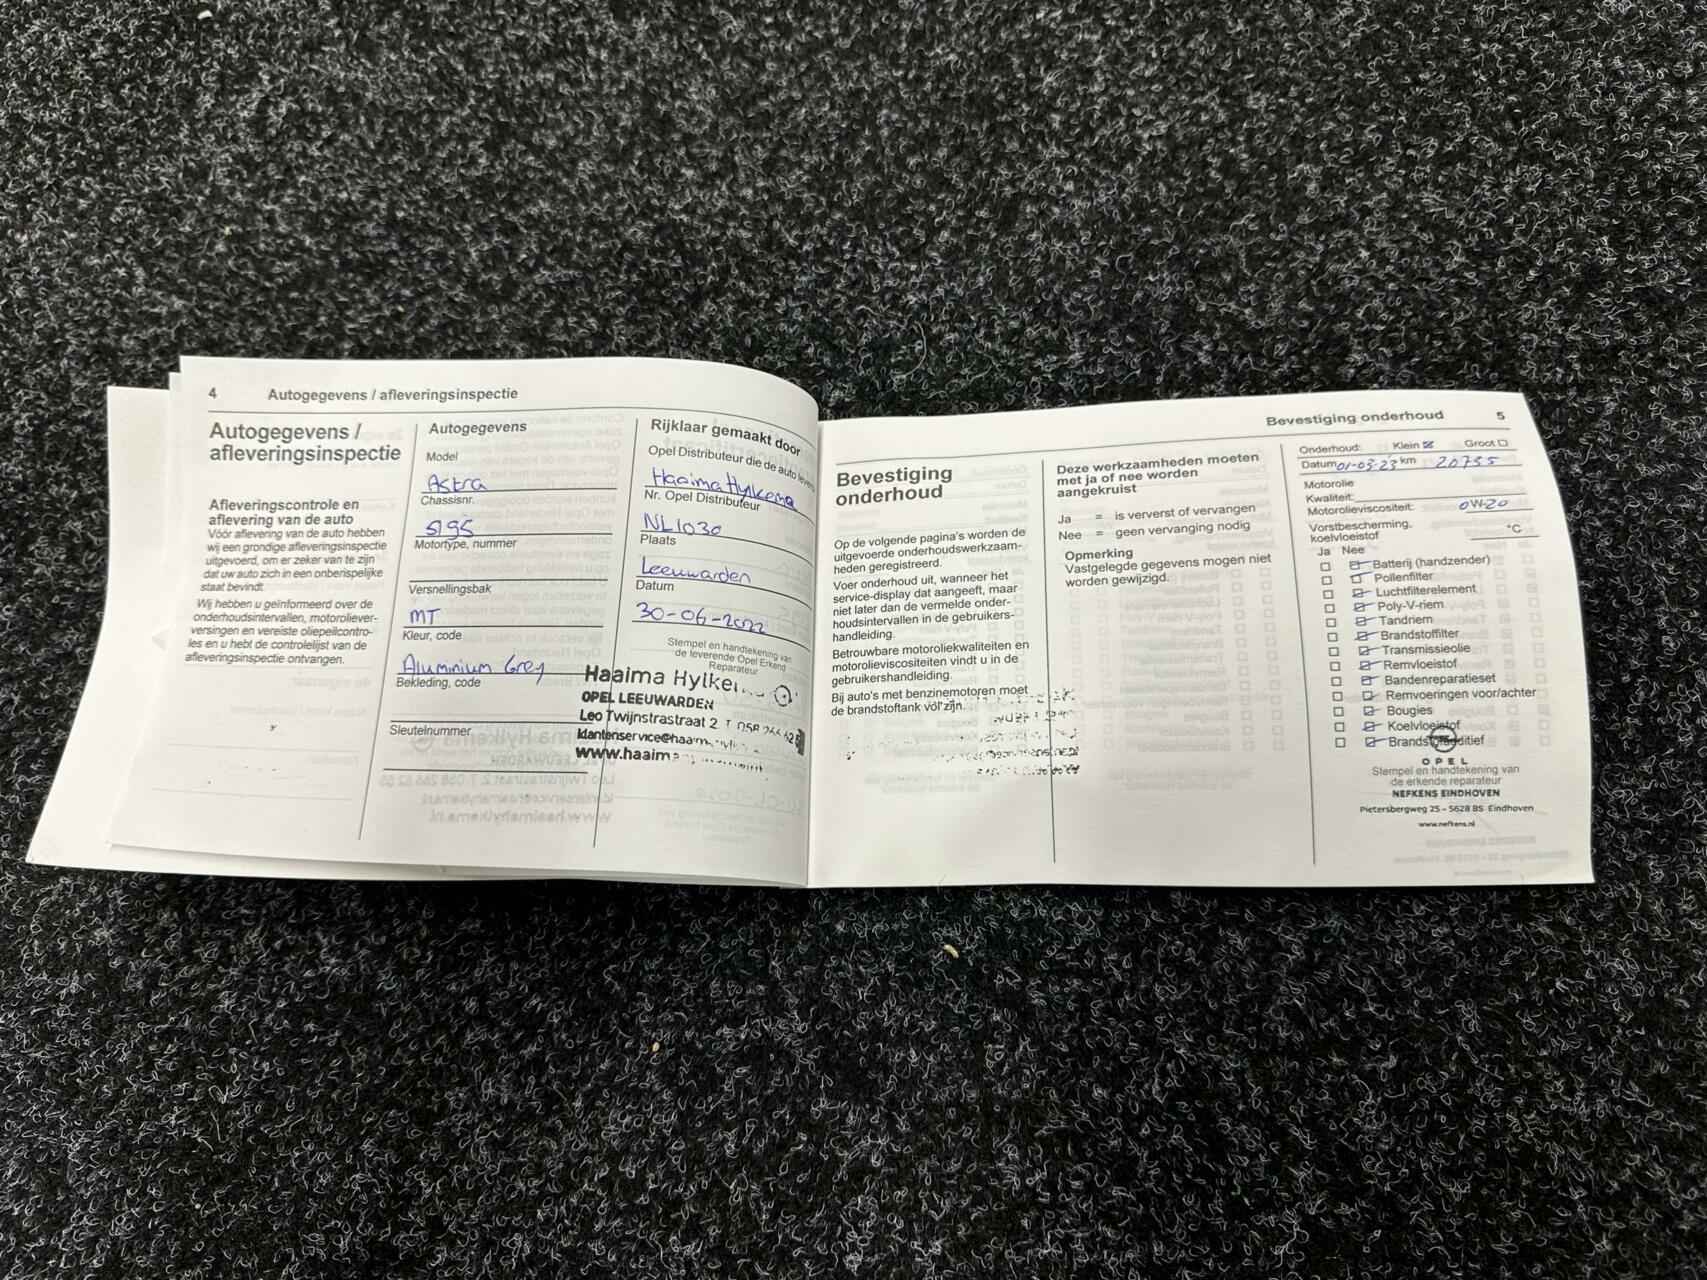 4 Autogegevens / afleveringsinspectie
Autogegevens /
afleveringsinspectie
Afleveringscontrole en
aflevering van de auto
Vóór aflevering van de auto hebben
wij een grondige afleveringsinspectie
uitgevoerd, om er zeker van te zijn
dat uw auto zich in een onberispelijke
staat bevindt.
Wij hebben u geïnformeerd over de
onderhoudsintervallen, motoroliever-
versingen en vereiste oliepeilcontro-
les en u hebt de controlelijst van de
afleveringsinspectie ontvangen.
Autogegevens
Model
Astra
Chassisnr.
5195
Motortype, nummer
Versnellingsbak
MT
Kleur, code
Aluminium Grey
Bekleding, code
Sleutelnummer
Rijklaar gemaakt door
Opel Distributeur die de auto
Haaima Hylkema
Nr. Opel Distributeur
NL1030
Plaats
Leeuwarden
Datum
30-06-2022
Stempel en handtekening van
de leverende Opel Erkend
Reparateur
Haaima
OPEL LEEUWARDEN
Leo Twijnstrastraat 2
Bevestiging onderhoud 5
Bevestiging
onderhoud
Op de volgende pagina's worden de
uitgevoerde onderhoudswerkzaam-
heden geregistreerd.
Voer onderhoud uit, wanneer het
service-display dat aangeeft, maar
niet later dan de vermelde onder-
houdsintervallen in de gebruikers-
handleiding.
Betrouwbare motoroliekwaliteiten en
motorolieviscositeiten vindt u in de
gebruikershandleiding.
Bij auto's met benzinemotoren moet
de brandstoftank vol zijn.
Deze werkzaamheden moeten
met ja of nee worden
aangekruist
Ja = is ververst of vervangen
Nee = geen vervanging nodig
Opmerking
Vastgelegde gegevens mogen niet
worden gewijzigd.
Onderhoud: Klein Groot
Datum 01-03-23 km 20735
Motorolie
Kwaliteit:
Motorolieviscositeit: 0W-20
Vorstbescherming,
koelvloeistof °C
Ja Nee
Batterij (handzender)
Pollenfilter
Luchtfilterelement
Poly-V-riem
Tandriem
Brandstoffilter
Transmissieolie
Remvloeistof
Bandenreparatieset
Remvoeringen voor/achter
Bougies
Koelvloeistof
Brandstofadditief
OPEL
Stempel en handtekening van
de erkende reparateur
NEFKENS EINDHOVEN
Pietersbergweg 25 - 5628 BS Eindhoven
www.nefkens.nl